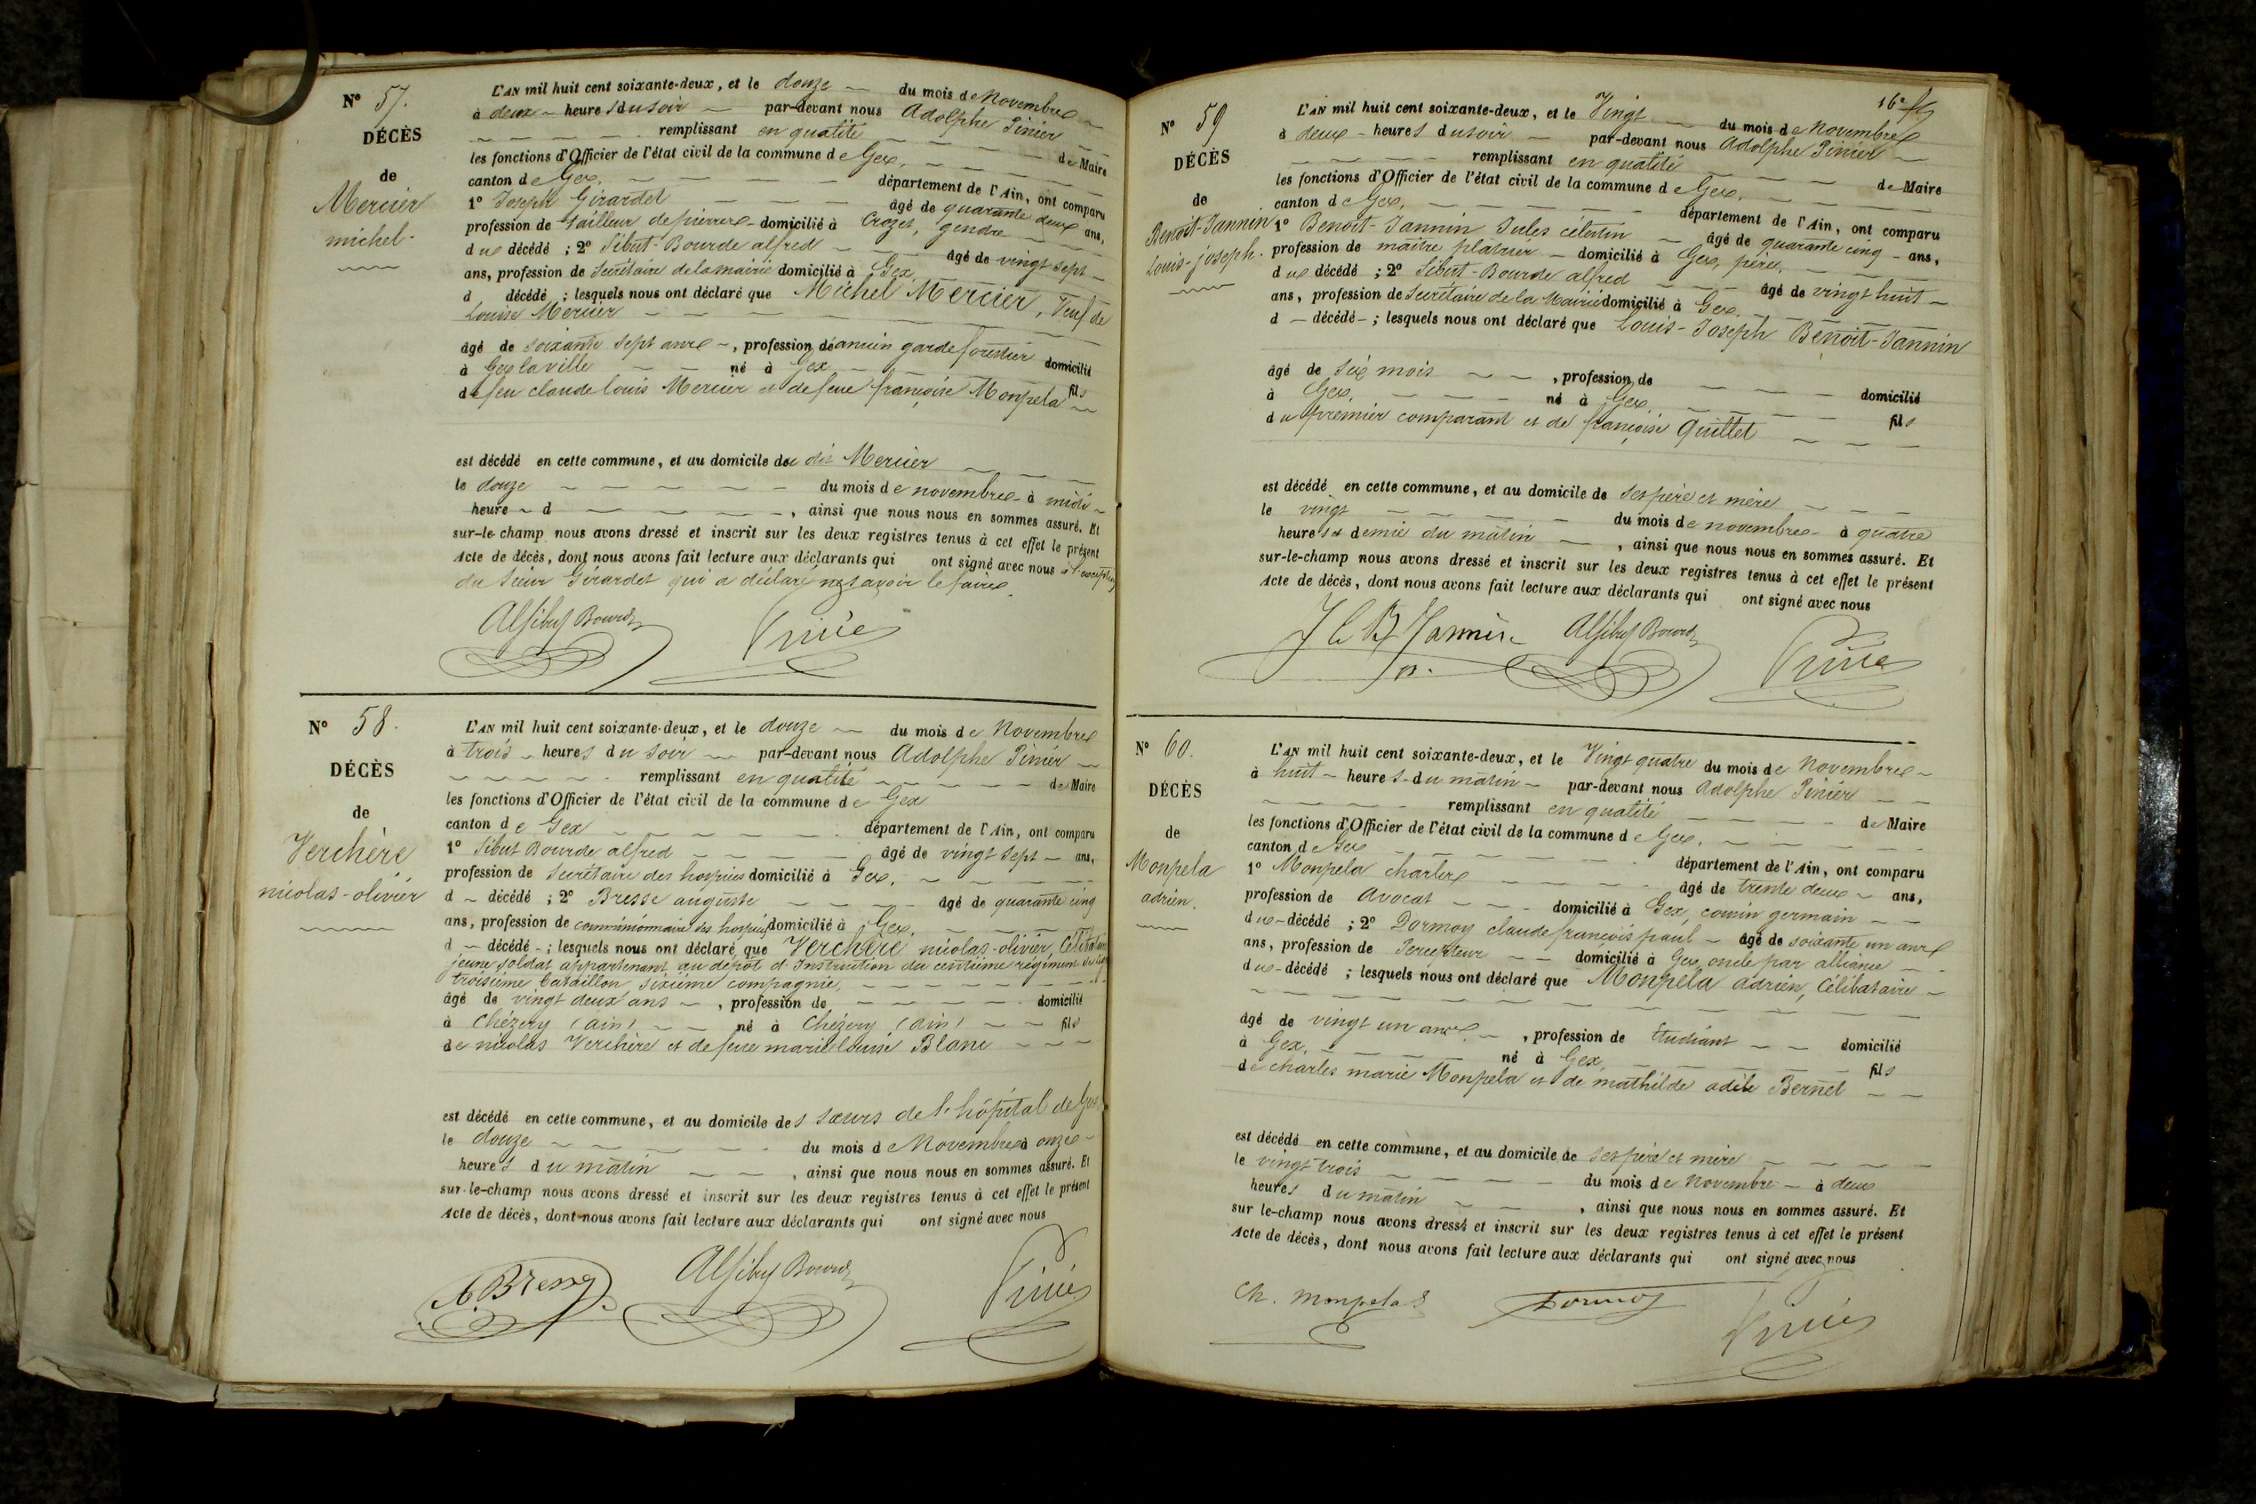 N° 57.
DÉCÈS
de
Mercier
michel.
L'AN mil huit cent soixante-deux, et le douze du mois de Novembre
à deux heures du soir par-devant nous Adolphe Pinier
remplissant en qualité de Maire
les fonctions d'Officier de l'état civil de la commune de Gex,
canton de Gex, département de l'Ain, ont comparu
1° Joseph Girardet âgé de quarante deux ans,
profession de tailleur de pierres domicilié à Crozet, gendre
du décédé ; 2° Sibut-Bourde alfred âgé de vingt sept
ans, profession de Secrétaire de la mairie domicilié à Gex
d décédé ; lesquels nous ont déclaré que Michel Mercier, Veuf de
Louise Mercier
âgé de soixante sept ans, profession de ancien garde forestier domicilié
à Gex la ville né à Gex fils
de feu claude louis Mercier et de feue françoise Monpela
est décédé en cette commune, et au domicile du dit Mercier
le douze du mois de novembre à midi
heure d , ainsi que nous nous en sommes assuré. Et
sur-le-champ nous avons dressé et inscrit sur les deux registres tenus à cet effet le présent
Acte de décès, dont nous avons fait lecture aux déclarants qui ont signé avec nous à l'exception
du sieur Girardet qui a déclaré ne savoir le faire.
Al Sibut Bourde Pinier
N° 58.
DÉCÈS
de
Verchère
nicolas-olivier
L'AN mil huit cent soixante-deux, et le douze du mois de Novembre
à trois heures du soir par-devant nous Adolphe Pinier
remplissant en qualité de Maire
les fonctions d'Officier de l'état civil de la commune de Gex
canton de Gex département de l'Ain, ont comparu
1° Sibut Bourde alfred âgé de vingt sept ans,
profession de Secrétaire des hospices domicilié à Gex,
d décédé ; 2° Bresse auguste âgé de quarante cinq
ans, profession de commissionnaire des hospices domicilié à Gex,
d décédé ; lesquels nous ont déclaré que Verchère nicolas-olivier, Célibataire
jeune soldat appartenant au dépôt d'Instruction du centième régiment de ligne
troisième bataillon, sixième compagnie,
âgé de vingt deux ans, profession de domicilié
à Chézery (ain) né à Chézery (ain) fils
de nicolas Verchère et de feue marie louise Blanc
est décédé en cette commune, et au domicile des sœurs de l'hôpital de Gex
le douze du mois de Novembre à onze
heures du matin , ainsi que nous nous en sommes assuré. Et
sur-le-champ nous avons dressé et inscrit sur les deux registres tenus à cet effet le présent
Acte de décès, dont nous avons fait lecture aux déclarants qui ont signé avec nous
A. Bresse Al Sibut Bourde Pinier
16e
N° 59
DÉCÈS
de
Benoit-Jannin
Louis-joseph.
L'AN mil huit cent soixante-deux, et le Vingt du mois de Novembre
à deux heures du soir par-devant nous Adolphe Pinier
remplissant en qualité de Maire
les fonctions d'Officier de l'état civil de la commune de Gex,
canton de Gex, département de l'Ain, ont comparu
1° Benoit-Jannin Jules célestin âgé de quarante cinq ans,
profession de maitre platrier domicilié à Gex, père,
du décédé ; 2° Sibut-Bourde alfred âgé de vingt huit
ans, profession de Secrétaire de la Mairie domicilié à Gex,
d décédé ; lesquels nous ont déclaré que Louis-Joseph Benoit-Jannin
âgé de six mois , profession de domicilié
à Gex, né à Gex, fils
du premier comparant et de françoise Quillet
est décédé en cette commune, et au domicile de ses père et mère
le vingt du mois de novembre à quatre
heures et demie du matin , ainsi que nous nous en sommes assuré. Et
sur-le-champ nous avons dressé et inscrit sur les deux registres tenus à cet effet le présent
Acte de décès, dont nous avons fait lecture aux déclarants qui ont signé avec nous
J C B Jannin Al Sibut Bourde Pinier
N° 60.
DÉCÈS
de
Monpela
adrien.
L'AN mil huit cent soixante-deux, et le Vingt quatre du mois de Novembre
à huit heures du matin par-devant nous Adolphe Pinier
remplissant en qualité de Maire
les fonctions d'Officier de l'état civil de la commune de Gex,
canton de Gex département de l'Ain, ont comparu
1° Monpela charles âgé de trente deux ans,
profession de avocat domicilié à Gex, cousin germain
du décédé ; 2° Dormoy claude françois paul âgé de soixante un ans
ans, profession de Percepteur domicilié à Gex, oncle par alliance
du décédé ; lesquels nous ont déclaré que Monpela adrien, Célibataire
âgé de vingt un ans, profession de Etudiant domicilié
à Gex, né à Gex, fils
de charles marie Monpela et de mathilde adèle Bernet
est décédé en cette commune, et au domicile de ses père et mère
le vingt trois du mois de Novembre à deux
heures du matin , ainsi que nous nous en sommes assuré. Et
sur le-champ nous avons dressé et inscrit sur les deux registres tenus à cet effet le présent
Acte de décès, dont nous avons fait lecture aux déclarants qui ont signé avec nous
Ch. Monpela Dormoy Pinier